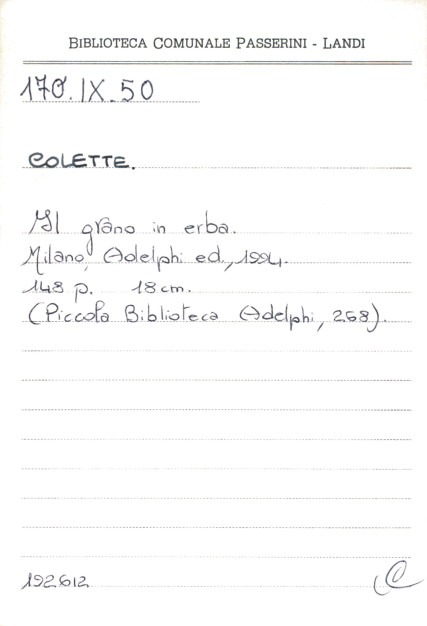 BIBLIOTECA COMUNALE PASSERINI - LANDI
170.IX.50
COLETTE.
Il grano in erba.
Milano, Adelphi ed., 1994.
148 p. 18 cm.
(Piccola Biblioteca Adelphi, 268).
192612
C